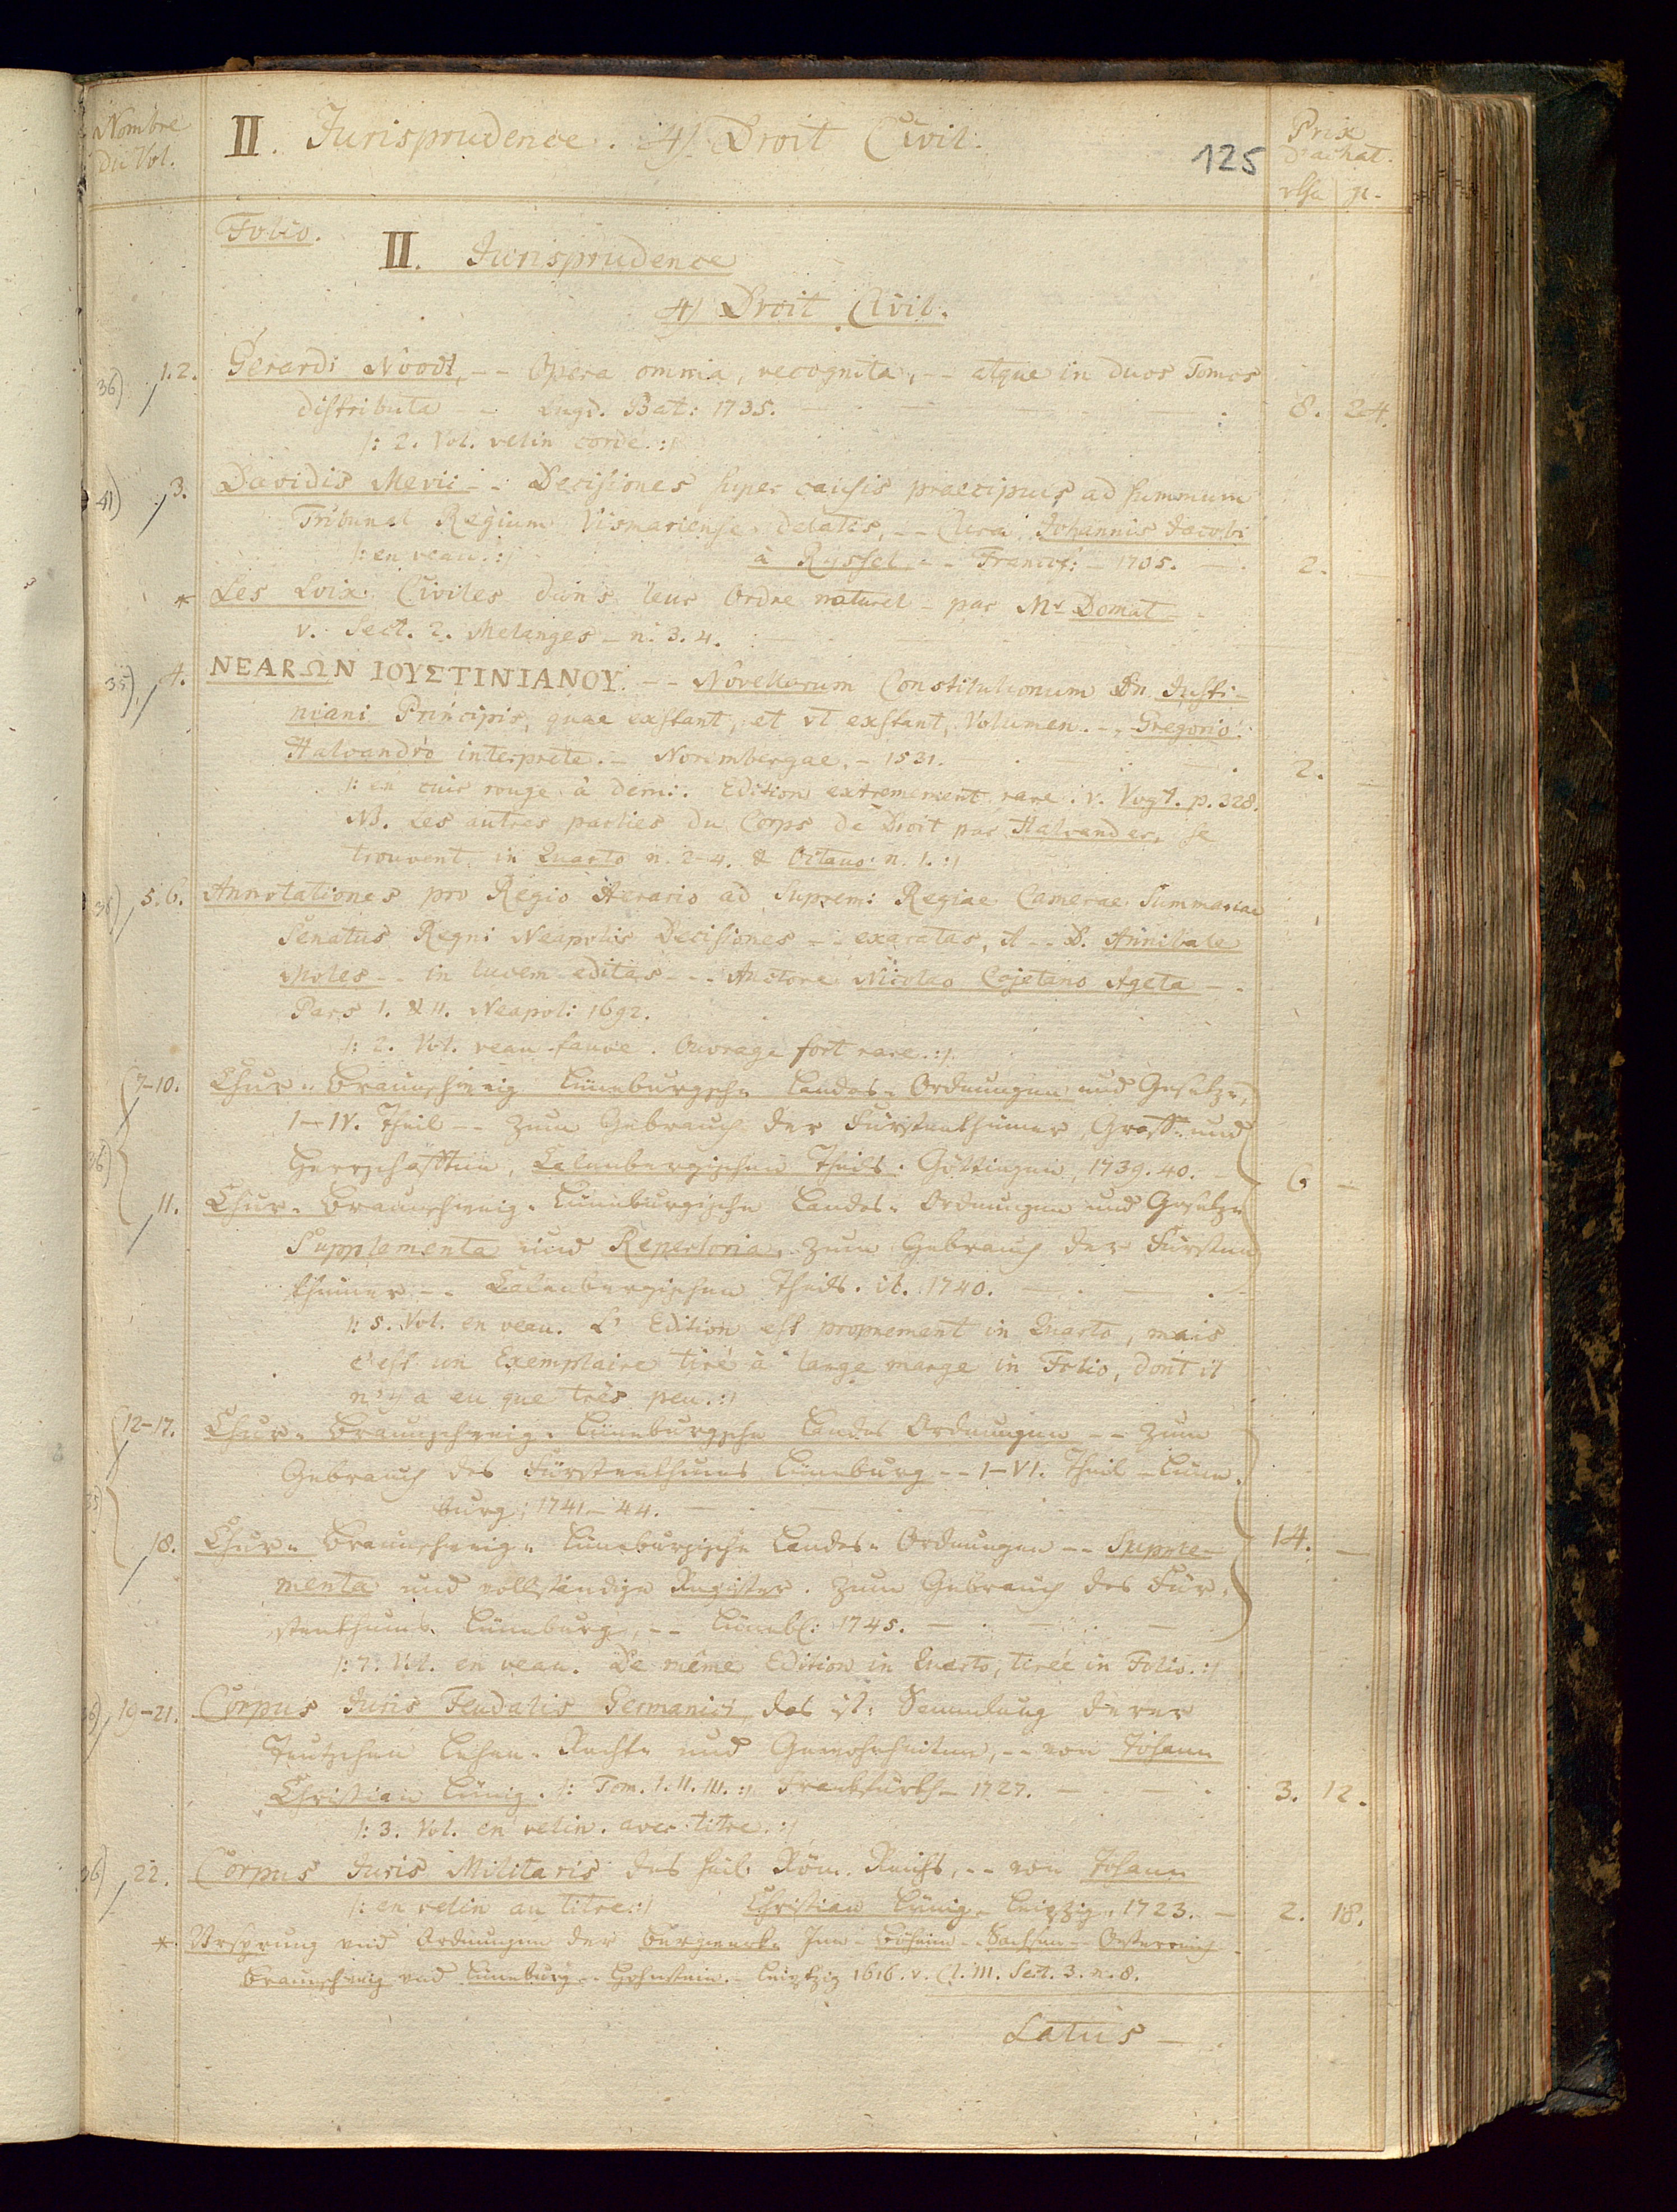 Nombre
Du Vol.
II. Jurisprudence. 4) Droit Civil.
125
Prix
d'achat.
Folio.
II. Jurisprudence
4) Droit Civil.
36) 1.2. Gerardi Noodt, -- Opera omnia, recognita, -- atque in duos Tomos
distributa -- Lugd. Bat: 1735. 8. 24.
/: 2. Vol. velin cordé. :/
41) 3. Davidis Mevii -- Decisiones super causis praecipuis ad summum
Tribunal Regium Vismariense delatis, -- Cura Johannis Jacobi
/: en veau. :/ à Ryssel, -- Francof: - 1705. — 2. —
* Les Loix Civiles dans leur Ordre naturel - par Mr Domat
v. Sect. 2. Melanges - n. 3. 4.
35) 4. ΝΕΑRΩΝ ΙΟΥΣΤΙΝΙΑΝΟΥ. -- Novellarum Constitutionum Dn. Justi-
niani Principis, quae exstant, et vt exstant, Volumen. -- Gregorio
Haloandro interprete. - Norimbergae. - 1531. 2. —
/: en cuir rouge à demi. Edition extremement rare. v. Vogt. p. 328.
NB. Les autres parties du Corps de Droit par Haloander, se
trouvent in Quarto n. 2-4. & Octavo: n. 1. :/
36) 5.6. Annotationes pro Regio Aerario ad Suprem: Regiae Camerae Summariae
Senatus Regni Neapolis Decisiones -- exaratas, A -- D. Annibale
Moles -- in lucem editas -- Auctore Nicolao Cajetano Ageta --
Pars I. & II. Neapol: 1692.
/: 2. Vol. veau fauve. Ouvrage fort rare. :/
7-10. Chur-Braunschweig Lüneburgsche Landes-Ordnungen und Gesetze,
I-IV. Theil -- zum Gebrauch der Fürstenthümer, Graff- und
36) Herrschafften, Calenbergischen Theils. Göttingen, 1739. 40. 6 —
11. Chur-Braunschweig-Lüneburgische Landes-Ordnungen und Gesetze
Supplementa und Repertoria, zum Gebrauch der Fürsten
thümer -- Calenbergischen Theils. it. 1740.
/: 5. Vol. en veau. L'Edition est proprement in Quarto, mais
c'est un Exemplaire tiré à large marge in Folio, dont il
n'y a eu que très peu. :/
12-17. Chur-Braunschweig-Lüneburgsche Landes Ordnungen -- zum
Gebrauch des Fürstenthums Lüneburg -- I-VI. Theil - Lüne-
burg, 1741-44.
18. Chur-Braunschweig-Lüneburgische Landes-Ordnungen -- Supple- 14. —
menta und vollständige Register. zum Gebrauch des Für-
stenthums Lüneburg, -- Lünebl: 1745.
/: 7. Vol. en veau. La même Edition in Quarto, tirée in Folio. :/
36) 19-21. Corpus Juris Feudalis Germanici, das ist: Sammlung derer
Teutschen Lehen-Rechte und Gewohnheiten, -- von Johann
Christian Lünig. /: Tom. I. II. III. :/ Franckfurth - 1727. 3. 12.
/: 3. Vol. en velin. avec titre. :/
36) 22. Corpus Juris Militaris des heil. Röm. Reichs, -- von Johann
/: en velin au titre. :/ Christian Lünig. Leipzig, 1723. — 2. 18.
* Ursprung und Ordnungen der Bergwerke Inn - Böheim - Sachsen - Osterreich
Braunschweig und Lüneburg - Hohnstein. Leiptzig 1616. v. Cl. III. Sect. 3. n. 8.
Latus —